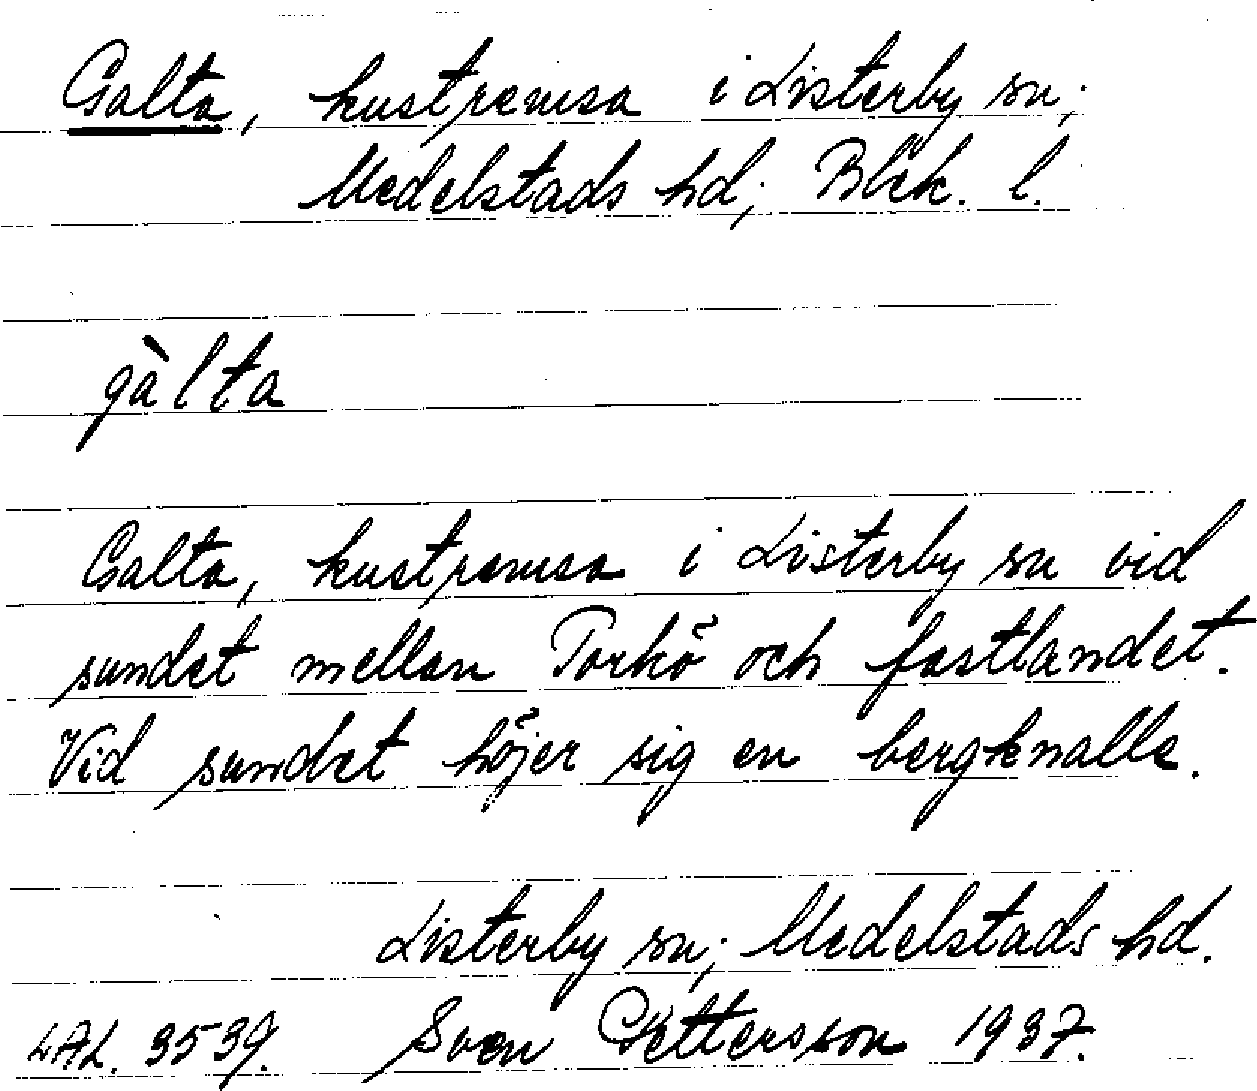 Galta, kustremsa i Listerby sn;
Medelstads hd; Blek. l.
gàlta
Galta, kustremsa i Listerby sn vid
sundet mellan Torkö och fastlandet.
Vid sundet höjer sig en bergknalle.
Listerby sn; Medelstads hd.
LAL. 3539. Sven Pettersson 1937.